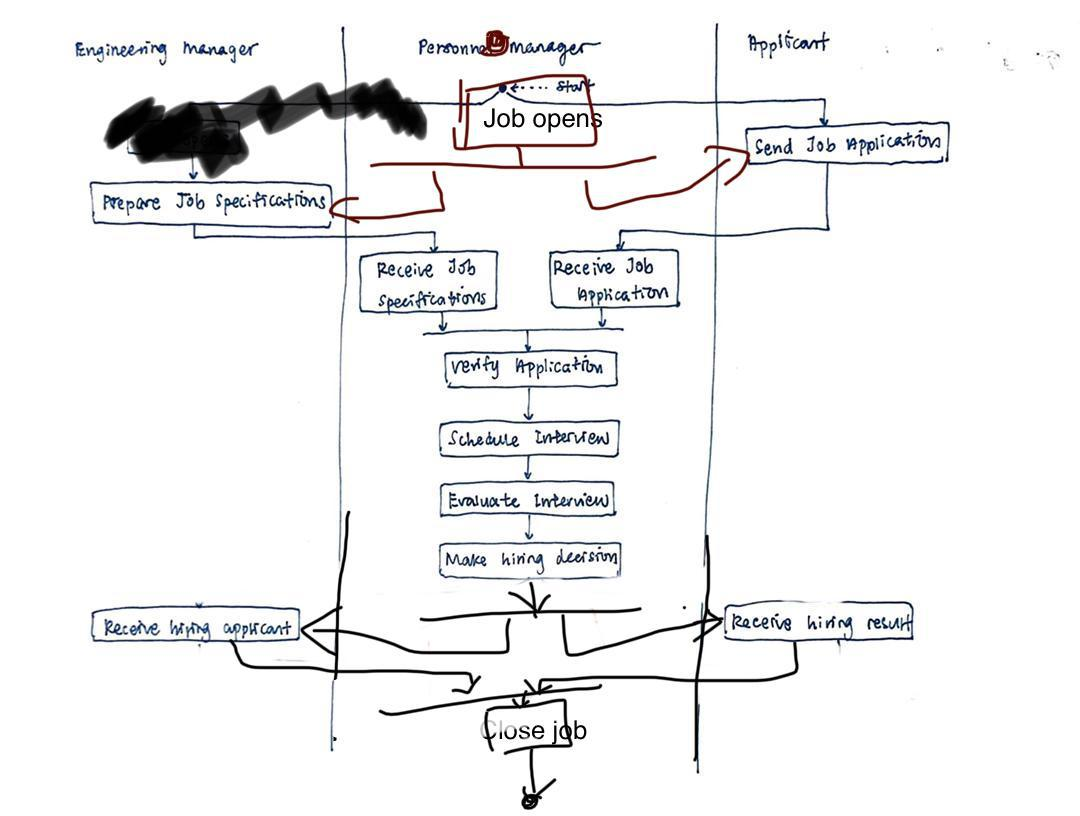 Engineering manager
Personnel manager
Applicant
start
Job opens
Send Job Application
Prepare Job Specifications
Receive Job
Specifications
Receive Job
Application
Verify Application
Schedule Interview
Evaluate Interview
Make hiring decision
Receive hiring applicant
Receive hiring result
Close job